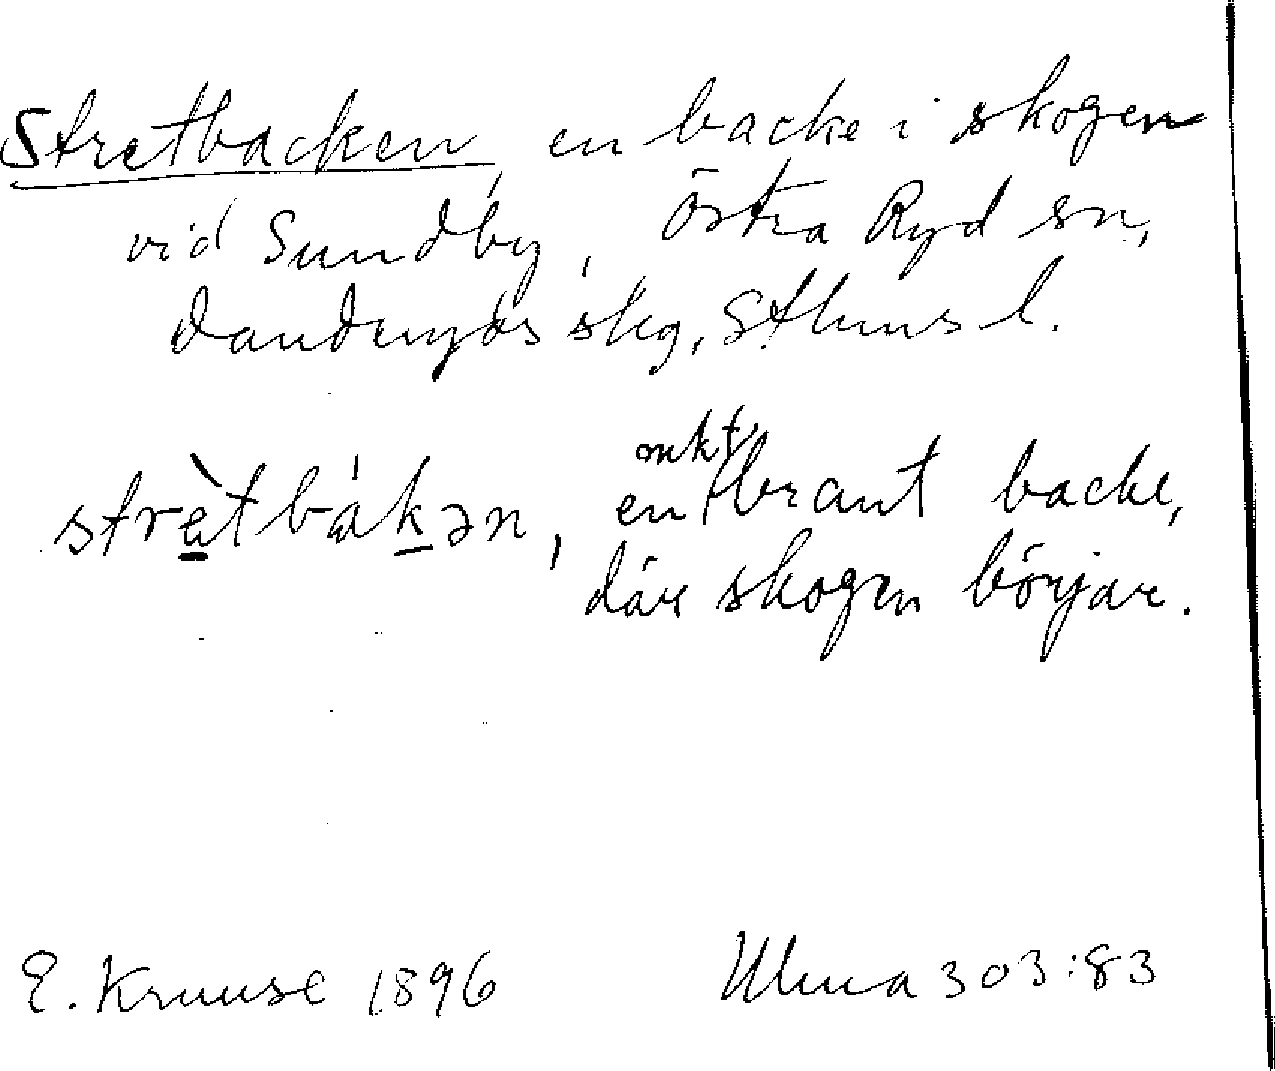 Stretbacken, en backe i skogen
vid Sundby, Östra Ryd sn,
Danderyds skg, Sthms l.
strè̲tbákə̲n, en mkt brant backe,
där skogen börjar.
E. Kruuse 1896 Ulma 303:83